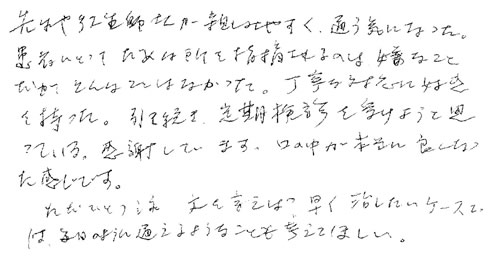 先生や衛生師さんが親しみやすく、通う気になった。
患者にとって たみは所を指摘されるのは嫌なこと
だが、そんなことはなかった。丁寧な対応に好感
を持った。引き続き、定期検診を受けようと思
っている。感謝しています。口の中が本当に良くなっ
た感じです。
ただひとつ 文を言えば、早く治したいケースで
は、毎日のように通えるようなことも考えてほしい。